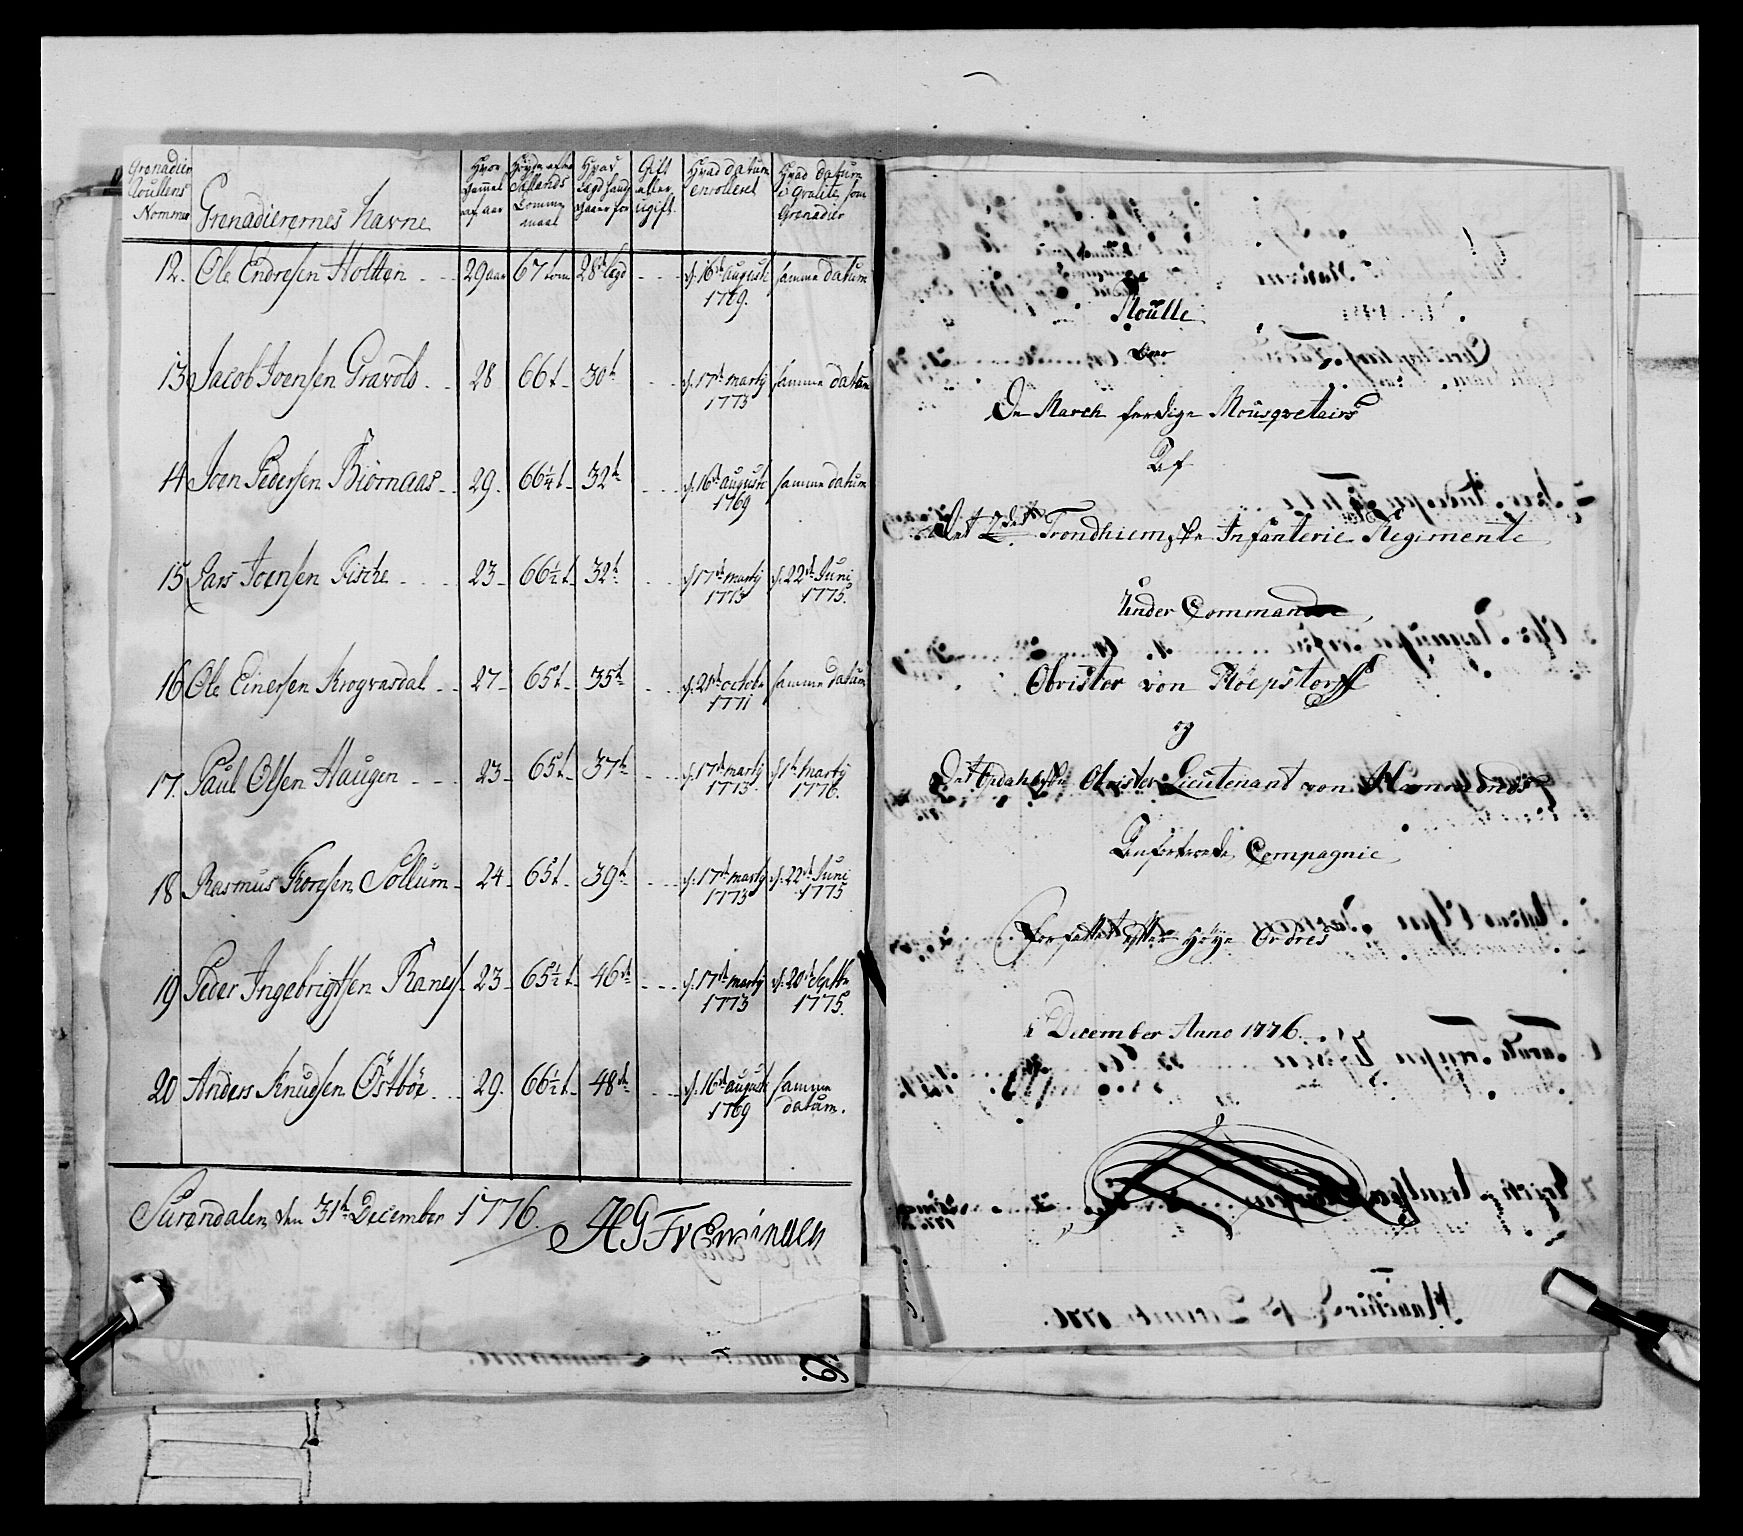 Grenadier Roullens Nommer | Grenadierernes Navne | Hvor gammel af aar | Høyde efter Siellands Tomme maal | Hvad Legd hand staaer for | Gift eller ugift. | Hvad datum enrollered | Hvad datum i qualite som Grenadier
12. Ole Endresen Holten | 29 aar | 67 tom | 28de Legd | d. 16de august 1769. | samme datum
13 Jacob Joensen Gravols | 28 | 66 t. | 30te | d. 17de martij 1773 | samme datum
14 Joen Pedersen Biørnaas | 29. | 66¼ t. | 32te | d. 16de august 1769 | samme datum
15 Lars Joensen Fische | 23 | 66½ t. | 32te | d. 17de martij 1773 | d. 22de Juni 1775.
16 Ole Einersen Krogvasdal | 27 | 65 t. | 35te | d. 21de octobr 1771 | samme datum
17. Paul Olsen Haugen | 23 | 65 t. | 37te | d. 17de martij 1773. | d. 1te martij 1776.
18 Rasmus Toresen Sollum | 24 | 65 t. | 39te | d. 17de martij 1773 | d. 22de Juni 1775
19 Peder Ingebrigtsen Ranes | 23 | 65½ t. | 46de | d. 17de martij 1773 | d. 20de Septbr 1775.
20 Anders Knudsen Östböe | 29. | 66½ t. | 48de | d. 16de august 1769 | samme datum.
Surendalen den 31te December 1776.
Roulle
over
De March færdige Mousqvetairs
Af
Det 2det Trondhiemske Infanterie Regimente
Under Commando
Obrister von Röepstorff
og
Det Opdahlske Obrister Lieutenant von
Anförtroede Compagnie
Forfattet efter Höye Ordres
i December Anno 1776.